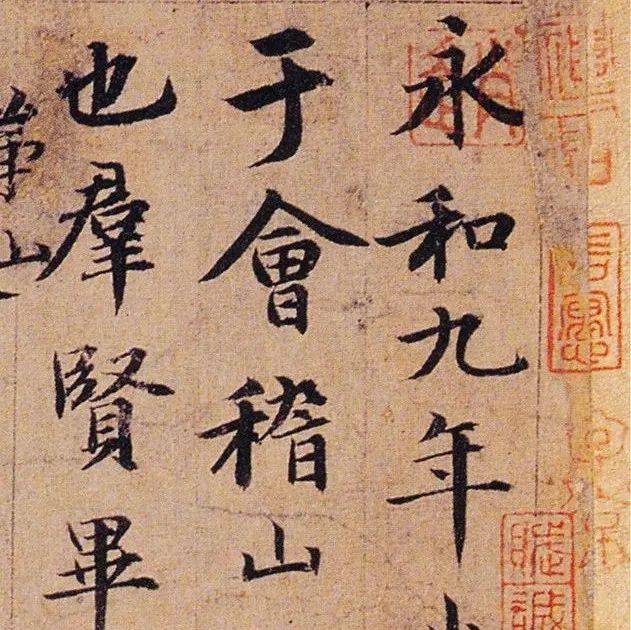 永和九年
于會稽山
也羣賢畢